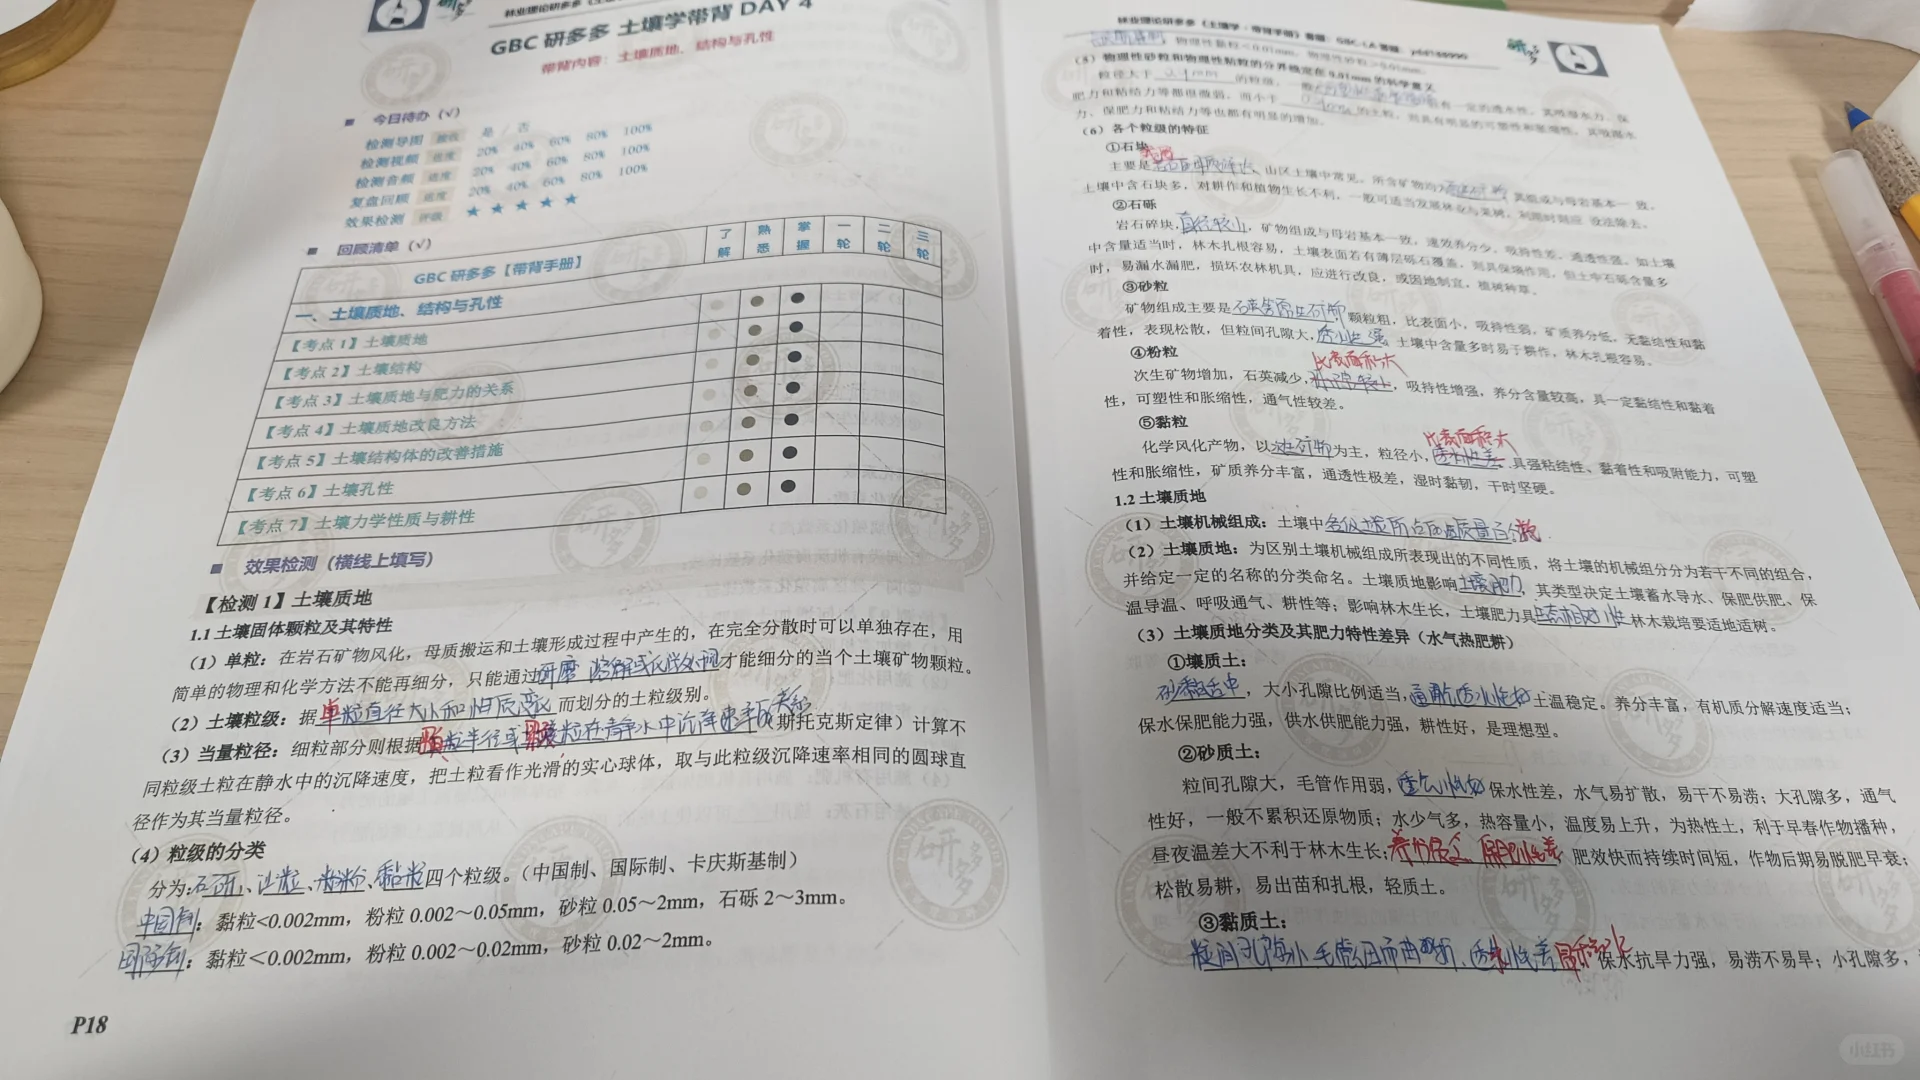 GBC 研多多 土壤学带背 DAY 4
带背内容：土壤质地、结构与孔性
■ 今日待办（√）
检测导图 是 / 否
检测视频 进度 20% 40% 60% 80% 100%
检测音频 进度 20% 40% 60% 80% 100%
复盘回顾 进度 20% 40% 60% 80% 100%
效果检测 评级 ★ ★ ★ ★ ★
■ 回顾清单（√）
GBC 研多多【带背手册】 了解 熟悉 掌握 一轮 二轮 三轮
一、土壤质地、结构与孔性
【考点 1】土壤质地
【考点 2】土壤结构
【考点 3】土壤质地与肥力的关系
【考点 4】土壤质地改良方法
【考点 5】土壤结构体的改善措施
【考点 6】土壤孔性
【考点 7】土壤力学性质与耕性
■ 效果检测（横线上填写）
【检测 1】土壤质地
1.1 土壤固体颗粒及其特性
（1）单粒：在岩石矿物风化，母质搬运和土壤形成过程中产生的，在完全分散时可以单独存在，用
简单的物理和化学方法不能再细分，只能通过研磨 溶解或化学处理才能细分的当个土壤矿物颗粒。
（2）土壤粒级：据单粒直径大小和性质变化而划分的土粒级别。
（3）当量粒径：细粒部分则根据颗粒半径与颗粒在静水中沉降速率的关系（斯托克斯定律）计算不
同粒级土粒在静水中的沉降速度，把土粒看作光滑的实心球体，取与此粒级沉降速率相同的圆球直
径作为其当量粒径。
（4）粒级的分类
分为:石砾、沙粒、粉粒、黏粒四个粒级。（中国制、国际制、卡庆斯基制）
中国制：黏粒<0.002mm，粉粒 0.002～0.05mm，砂粒 0.05～2mm，石砾 2～3mm。
国际制：黏粒＜0.002mm，粉粒 0.002～0.02mm，砂粒 0.02～2mm。
P18
林业理论研多多《土壤学·带背手册》
物理性黏粒＜0.01mm，物理性砂粒＞0.01mm。
（5）物理性砂粒和物理性粘粒的分界线定在 0.01mm 的科学意义
粒径大于 的粒级，一般
肥力和粘结力等都很微弱，而小于 的土粒，则具有明显的可塑性和胀缩性，其吸湿水
力、保肥力和粘结力等也都有明显的增加。
（6）各个粒级的特征
①石块
主要是 山区土壤中常见，所含矿物均为 其组成与母岩基本一致，
土壤中含石块多，对耕作和植物生长不利，一般可适当发展林业与果树，利用时则应 设法除去。
②石砾
岩石碎块，直径较小，矿物组成与母岩基本一致，速效养分少，吸持性差，通透性强。如土壤
中含量适当时，林木扎根容易，土壤表面若有薄层砾石覆盖，则具保墒作用，但土中石砾含量多
时，易漏水漏肥，损坏农林机具，应进行改良，或因地制宜，植树种草。
③砂粒
矿物组成主要是石英等原生矿物，颗粒粗，比表面小，吸持性弱，矿质养分低，无黏结性和黏
着性，表现松散，但粒间孔隙大，透水性强，土壤中含量多时易于耕作，林木扎根容易。
④粉粒
比表面积大
次生矿物增加，石英减少， 吸持性增强，养分含量较高，具一定黏结性和黏着
性，可塑性和胀缩性，通气性较差。
⑤黏粒
比表面积大
化学风化产物，以次生矿物为主，粒径小，透水性差，具强粘结性、黏着性和吸附能力，可塑
性和胀缩性，矿质养分丰富，通透性极差，湿时黏韧，干时坚硬。
1.2 土壤质地
（1）土壤机械组成：土壤中各级土粒所占的质量百分数
（2）土壤质地：为区别土壤机械组成所表现出的不同性质，将土壤的机械组分分为若干不同的组合，
并给定一定的名称的分类命名。土壤质地影响土壤肥力，其类型决定土壤蓄水导水、保肥供肥、保
温导温、呼吸通气、耕性等；影响林木生长，土壤肥力具生态相对性林木栽培要适地适树。
（3）土壤质地分类及其肥力特性差异（水气热肥耕）
①壤质土：
砂黏适中，大小孔隙比例适当，通气透水性好土温稳定。养分丰富，有机质分解速度适当；
保水保肥能力强，供水供肥能力强，耕性好，是理想型。
②砂质土：
粒间孔隙大，毛管作用弱，透气性好保水性差，水气易扩散，易干不易涝；大孔隙多，通气
性好，一般不累积还原物质；水少气多，热容量小，温度易上升，为热性土，利于早春作物播种，
昼夜温差大不利于林木生长；养分贫乏 保肥性差 肥效快而持续时间短，作物后期易脱肥早衰；
松散易耕，易出苗和扎根，轻质土。
③黏质土：
粒间孔隙小 毛管 透水性差 保水抗旱力强，易涝不易旱；小孔隙多，
小红书